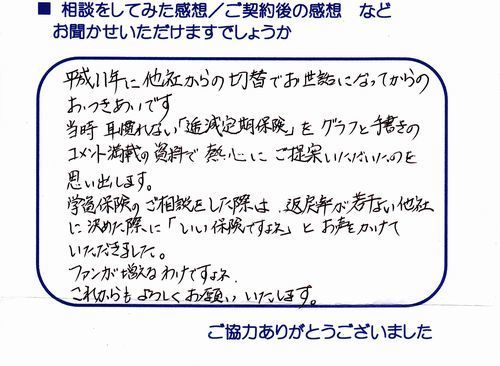 ■ 相談をしてみた感想／ご契約後の感想 など
お聞かせいただけますでしょうか
平成11年に他社からの切替でお世話になってからの
おつきあいです
当時 耳慣れない「逓減定期保険」を グラフと手書きの
コメント満載の資料で 熱心に ご提案いただいたのを
思い出します。
学資保険のご相談をした際は、返戻率が若干ない他社
に決めた際に「いい保険ですよネ」と お声をかけて
いただきました。
ファンが増えるわけですよネ.
これからも よろしくお願い いたします。
ご協力ありがとうございました